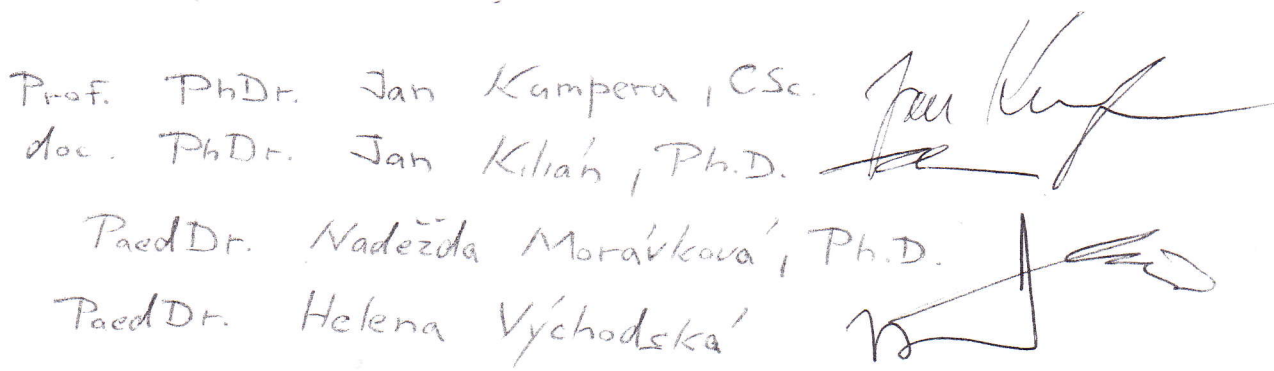 Prof. PhDr. Jan Kumpera, CSc. Jan
doc. PhDr. Jan Kilián, Ph.D.
PaedDr. Naděžda Morávková, Ph.D.
PaedDr. Helena Východská